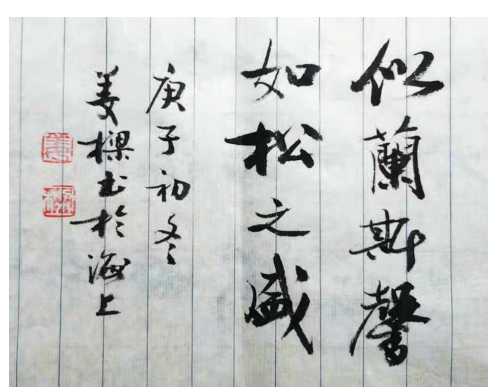 似蘭斯馨
如松之盛
庚子初冬
姜樑书於海上